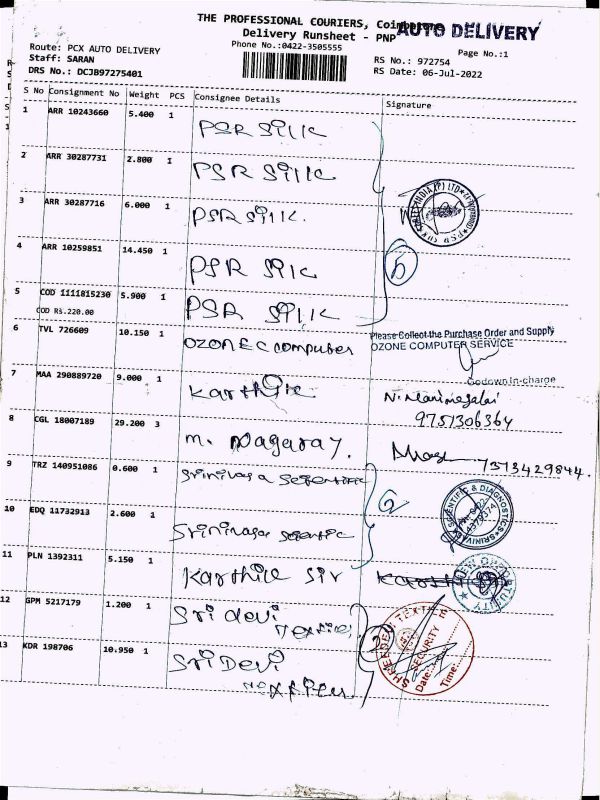 THE PROFESSIONAL COURIERS, Coimbatore
AUTO DELIVERY
Delivery Runsheet - PNP
Phone No.:0422-3505555
Page No.:1
Route: PCX AUTO DELIVERY
Staff: SARAN
RS No.: 972754
DRS No.: DCJB97275401
RS Date: 06-Jul-2022
S No Consignment No Weight PCS Consignee Details Signature
1 ARR 10243660 5.400 1 PSR Silk
2 ARR 30287731 2.800 1 PSR Silk
3 ARR 30287716 6.000 1 PSR Silk
4 ARR 10259851 14.450 1 PSR Silk
5
5 COD 1111815230 5.900 1 PSR Silk
COD RS.220.00
6 TVL 726609 10.150 1 OZONE Computer
Please Collect the Purchase Order and Supply
OZONE COMPUTER SERVICE
Godown in-charge
7 MAA 290889720 9.000 1 Karthik
N. Manimegalai
9751306364
8 CGL 18007189 29.200 3 M. Nagaraj.
7373429844.
9 TRZ 140951086 0.600 1 Srinivasa Scientific
10 EDQ 11732913 2.600 1 Srinivasa Scientific
SCIENTIFIC & DIAGNOSTICS
11 PLN 1392311 5.150 1 Karthik Sir
12 GPM 5217179 1.200 1 Sri devi
Textiles
2
SECURITY
Date:
Time:
13 KDR 198706 10.950 1 Sri Devi